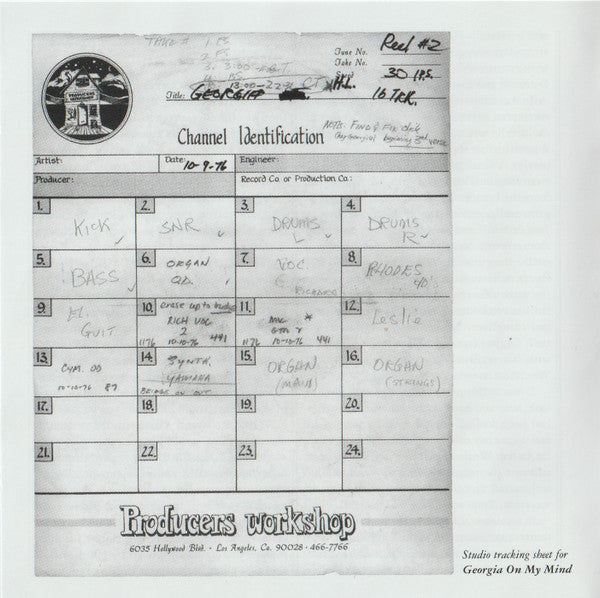 TAKE # 1. FS
2. FS
Tune No. Reel #2
Take No.
30 I.P.S.
Title: GEORGIA
16 TRK.
Channel Identification
NOTE: FIND & FIX click
beginning 3rd verse
Artist: Date: 10-9-76 Engineer:
Producer: Record Co. or Production Co.:
1. KICK
2. SNR
3. DRUMS L
4. DRUMS R
5. BASS
6. ORGAN OD.
7. VOC.
RICHARD
8. RHODES OD
9. EL. GUIT
10. erase up to bridge
RICH VOC
2
1176 10-10-76 441
11.
1176 10-10-76 441
12. Leslie
13. CYM. OD
10-10-76 87
14. SYNTH.
YAMAHA
BRIDGE ON OUT
15. ORGAN (MAIN)
16. ORGAN (STRINGS)
17.
18.
19.
20.
21.
22.
23.
24.
Producers workshop
6035 Hollywood Blvd. • Los Angeles, Ca. 90028 • 466-7766
Studio tracking sheet for
Georgia On My Mind